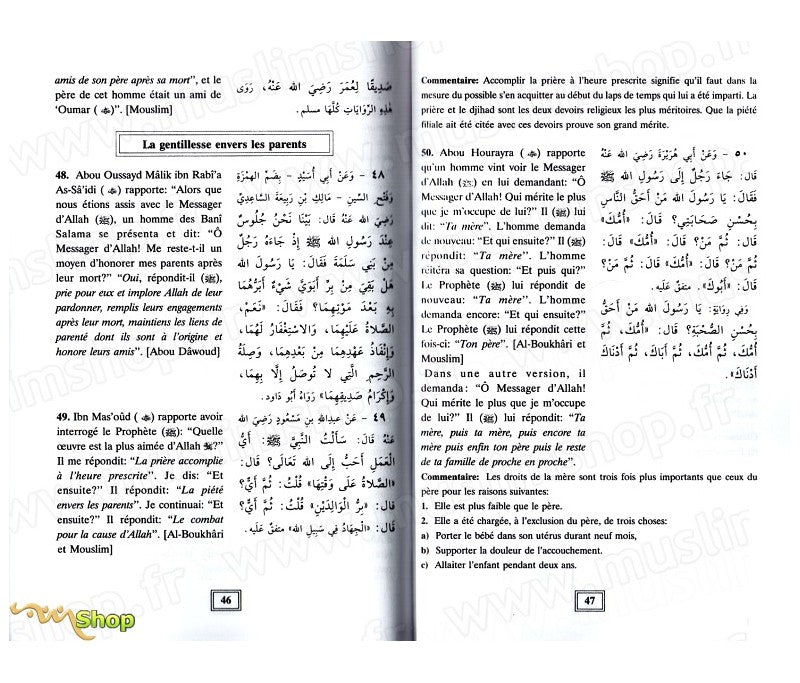 amis de son père après sa mort", et le
père de cet homme était un ami de
'Oumar (ﷺ)". [Mouslim]
صَدِيقًا لِعُمَرَ رَضِيَ الله عَنْهُ، رَوَى
هٰذِهِ الرِّوَايَاتِ كُلَّهَا مسلم.
La gentillesse envers les parents
48. Abou Oussayd Mâlik ibn Rabî'a
As-Sâ'idi ( ) rapporte: "Alors que
nous étions assis avec le Messager
d'Allah (ﷺ), un homme des Banî
Salama se présenta et dit: "Ô
Messager d'Allah! Me reste-t-il un
moyen d'honorer mes parents après
leur mort?" "Oui, répondit-il (ﷺ),
prie pour eux et implore Allah de leur
pardonner, remplis leurs engagements
après leur mort, maintiens les liens de
parenté dont ils sont à l'origine et
honore leurs amis". [Abou Dâwoud]
٤٨ - وَعَنْ أَبِي أُسَيْدٍ - بِضَمِّ الهَمْزَةِ
وَفَتْحِ السِّينِ - مَالِكِ بْنِ رَبِيعَةَ السَّاعِدِيِّ
رَضِيَ الله عَنْهُ قال: بَيْنَا نَحْنُ جُلُوسٌ
عِنْدَ رَسُولِ اللهِ ﷺ إذ جَاءَهُ رَجُلٌ
مِنْ بَنِي سَلَمَةَ فَقَالَ: يَا رَسُولَ اللهِ
هَلْ بَقِيَ مِنْ بِرِّ أَبَوَيَّ شَيْءٌ أَبَرُّهُمَا
بِهِ بَعْدَ مَوْتِهِمَا؟ فَقَالَ: «نَعَمْ،
الصَّلاةُ عَلَيْهِمَا، وَالاسْتِغْفَارُ لَهُمَا،
وَإِنْفَاذُ عَهْدِهِمَا مِنْ بَعْدِهِمَا، وَصِلَةُ
الرَّحِمِ الَّتِي لا تُوصَلُ إِلَّا بِهِمَا،
وَإِكْرَامُ صَدِيقِهِمَا» رَوَاهُ أبو داود.
49. Ibn Mas'oûd ( ) rapporte avoir
interrogé le Prophète (ﷺ): "Quelle
œuvre est la plus aimée d'Allah ?"
Il me répondit: "La prière accomplie
à l'heure prescrite". Je dis: "Et
ensuite?" Il répondit: "La piété
envers les parents". Je continuai: "Et
ensuite?" Il répondit: "Le combat
pour la cause d'Allah". [Al-Boukhâri
et Mouslim]
٤٩ - عَنْ عبدِاللهِ بن مَسْعُودٍ رَضِيَ الله
عَنْهُ قَالَ: سَأَلْتُ النَّبِيَّ ﷺ: أَيُّ
الْعَمَلِ أَحَبُّ إِلَى اللهِ تَعَالَى؟ قال:
«الصَّلاةُ عَلَى وَقْتِهَا» قُلْتُ: ثُمَّ أَيُّ؟
قال: «بِرُّ الْوَالِدَيْنِ» قُلْتُ: ثُمَّ أَيُّ؟
قال: «الْجِهَادُ فِي سَبِيلِ اللهِ» متفق عليه.
46
Shop
Commentaire: Accomplir la prière à l'heure prescrite signifie qu'il faut dans la
mesure du possible s'en acquitter au début du laps de temps qui lui a été imparti. La
prière et le djihad sont les deux devoirs religieux les plus méritoires. Que la piété
filiale ait été citée avec ces devoirs prouve son grand mérite.
50. Abou Hourayra ( ) rapporte
qu'un homme vint voir le Messager
d'Allah (ﷺ) en lui demandant: "Ô
Messager d'Allah! Qui mérite le plus
que je m'occupe de lui?" Il (ﷺ) lui
dit: "Ta mère". L'homme demanda
de nouveau: "Et qui ensuite?" Il (ﷺ)
répondit: "Ta mère". L'homme
réitéra sa question: "Et puis qui?"
Le Prophète (ﷺ) lui répondit de
nouveau: "Ta mère". L'homme
demanda encore: "Et qui ensuite?"
Le Prophète (ﷺ) lui répondit cette
fois-ci: "Ton père". [Al-Boukhâri et
Mouslim]
Dans une autre version, il
demanda: "Ô Messager d'Allah!
Qui mérite le plus que je m'occupe
de lui?" Il (ﷺ) lui répondit: "Ta
mère, puis ta mère, puis encore ta
mère puis enfin ton père puis le reste
de ta famille de proche en proche".
٥٠ - وَعَنْ أَبِي هُرَيْرَةَ رَضِيَ الله عَنْهُ
قال: جَاءَ رَجُلٌ إِلَى رَسُولِ اللهِ ﷺ
فَقَالَ: يَا رَسُولَ الله مَنْ أَحَقُّ النَّاسِ
بِحُسْنِ صَحَابَتِي؟ قَالَ: «أُمُّكَ»
قال: ثُمَّ مَنْ؟ قَالَ: «أُمُّكَ» قال:
ثُمَّ مَنْ؟ قال: «أُمُّكَ» قَالَ: ثُمَّ مَنْ؟
قَالَ: «أَبُوكَ». متفق عليه.
وَفِي رِوَايَةٍ: يَا رَسُولَ الله مَنْ أَحَقُّ
بِحُسْنِ الصُّحْبَةِ؟ قال: «أُمُّكَ، ثُمَّ
أُمُّكَ، ثُمَّ أُمُّكَ، ثُمَّ أَبَاكَ، ثُمَّ أَدْنَاكَ
أَدْنَاكَ».
Commentaire: Les droits de la mère sont trois fois plus importants que ceux du
père pour les raisons suivantes:
1. Elle est plus faible que le père.
2. Elle a été chargée, à l'exclusion du père, de trois choses:
a) Porter le bébé dans son utérus durant neuf mois,
b) Supporter la douleur de l'accouchement.
c) Allaiter l'enfant pendant deux ans.
47